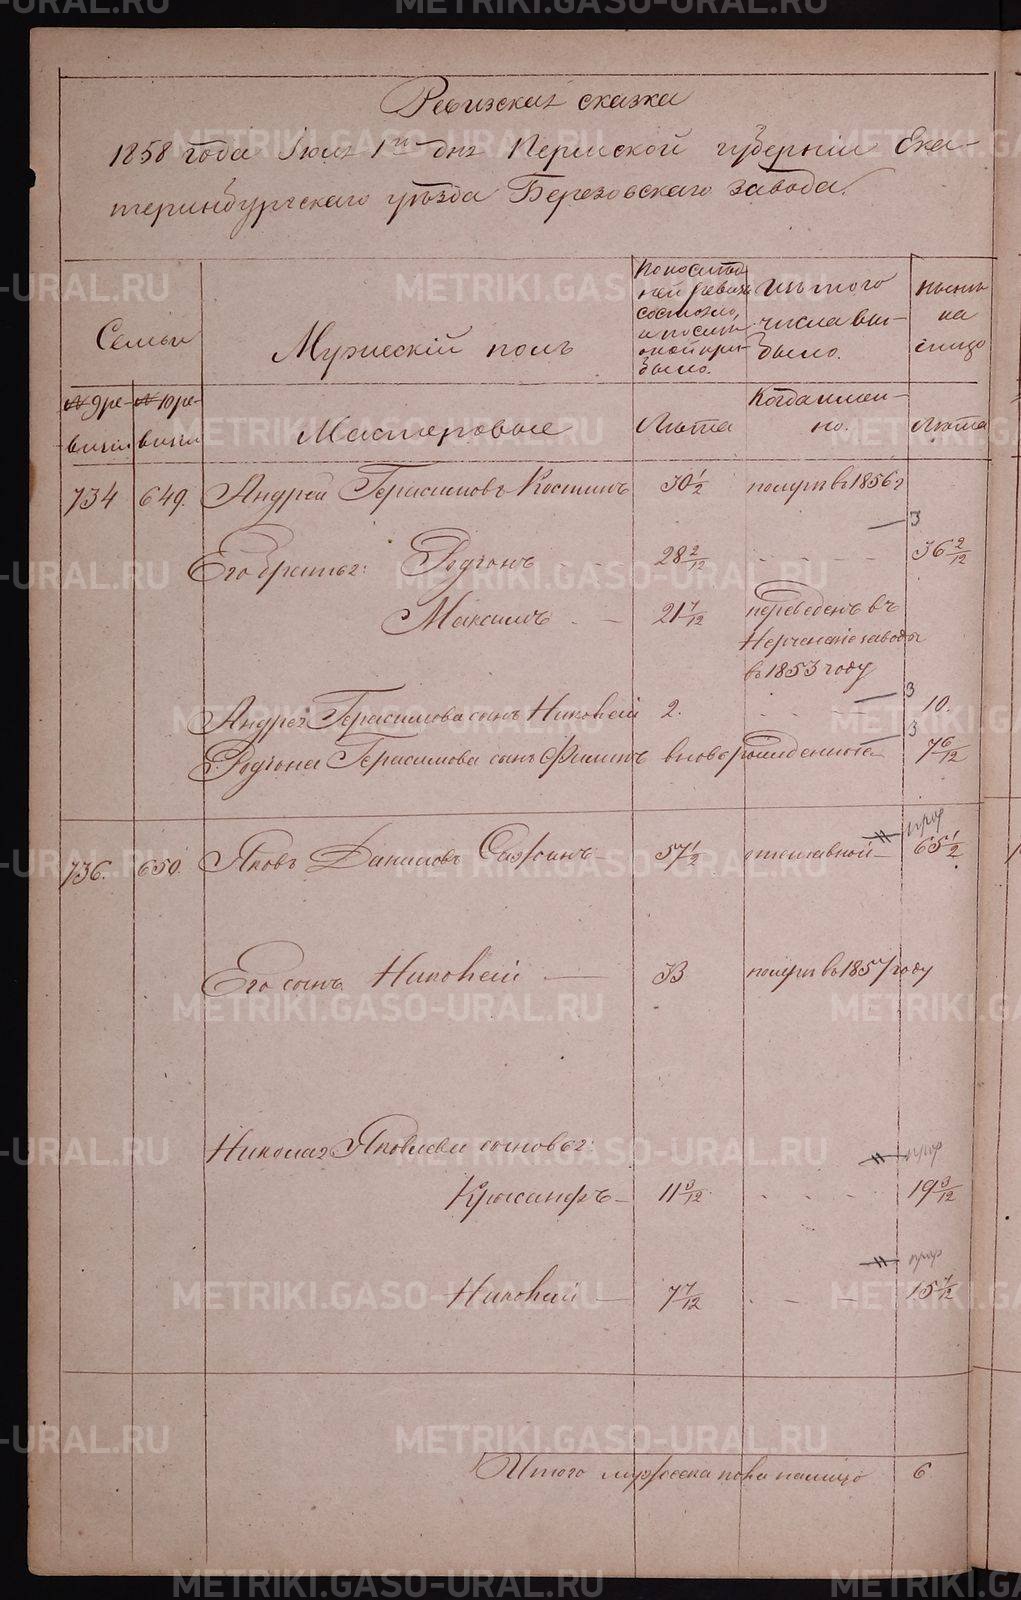 METRIKI.GASO-URAL.RU
Ревизская сказка
1858 года Iюля 1го дня Пермской губернiи Ека-
теринбургскаго уѣзда Березовскаго завода.
Семьи
Мужескiй полъ
По послѣд-
ней ревизiи
состояло,
и послѣ
оной при-
было.
Изъ того
числа вы-
было.
Нынѣ
на
лицо
№ 9 ре-
визiи
№ 10 ре-
визiи
Мастеровые
Лѣта
Когда имен-
но.
Лѣта
734 649. Андрей Герасимовъ Костинъ 30 1/2 померъ въ 1856 г
3
Его братья: Родiонъ 28 2/12 36 2/12
Максимъ 21 7/12 переведенъ въ
Нерчинскiе заводы
въ 1853 году
3
Андрея Герасимова сынъ Николай 2. 10.
3
Родiона Герасимова сынъ Филипъ вновь рожденъ 7 6/12
736. 650. Яковъ Даниловъ Сажинъ 57 1/2 отставной 65 1/2
Его сынъ Николай 33 померъ въ 1857 году
Николая Яковлева сыновья:
Крысанфъ 11 3/12 19 3/12
Николай 7 7/12 15 7/12
Итого мужеска пола налицо 6